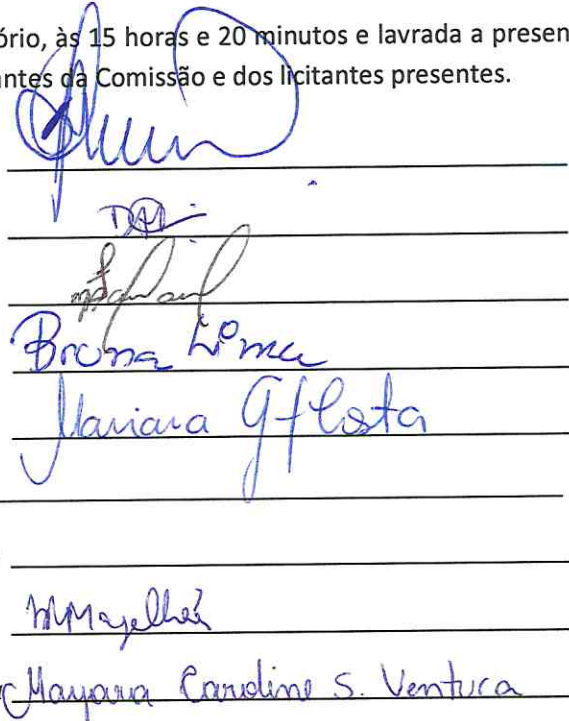 ório, às 15 horas e 20 minutos e lavrada a presen
antes da Comissão e dos licitantes presentes.
Bruna Lima
Mariana G f Costa
MMagalhães
Mayara Caroline S. Ventura